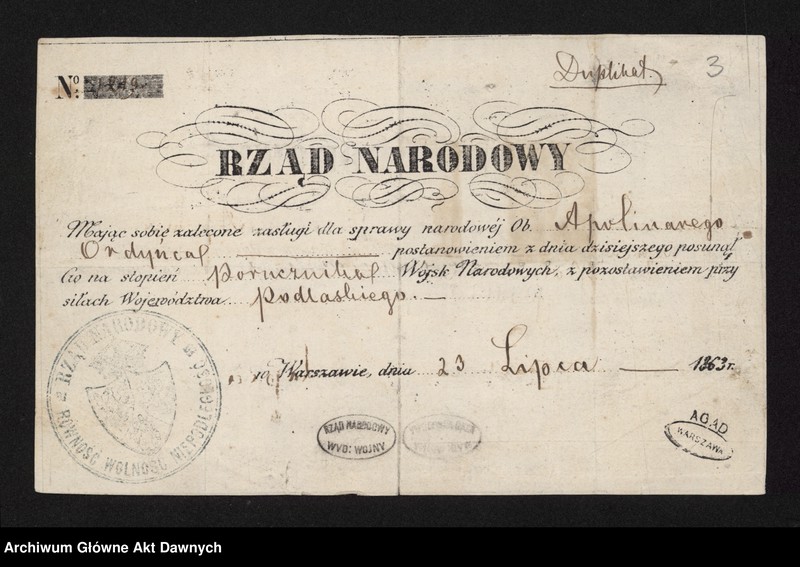 Duplikat. 3
No:
RZĄD NARODOWY
Mając sobie zalecone zasługi dla sprawy narodowéj Ob. Apolinarego
Ordyńca postanowieniem z dnia dzisiejszego posunął
Go na stopień porucznika Wojsk Narodowych, z pozostawieniem przy
siłach Województwa Podlaskiego. —
w Warszawie, dnia 23 Lipca — 1863 r.
RZĄD NARODOWY
RÓWNOŚĆ WOLNOŚĆ NIEPODLEGŁOŚĆ
RZĄD NARODOWY
WYD: WOJNY
AGAD
WARSZAWA
Archiwum Główne Akt Dawnych